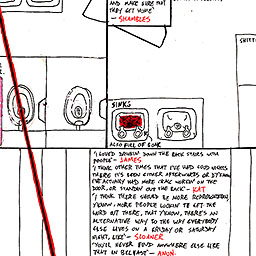 AND MAKE SURE THAT
THEY GET HOME'
- SHAMBLES
SHITTE
SINKS
ALSO FULL OF
DOWN THE BACK STAIRS WITH
PEOPLE' - JAMES
'I THINK OTHER TIMES THAT I'VE HAD GOOD WORKS
THERE IT'S BEEN EITHER AFTERWARDS OR
I'VE ACTUALLY HAD MORE WORKIN' ON THE
DOOR, OR STANDIN' OUT THE BACK' - KAT
'I THINK THERE SHOULD BE MORE
Y'KNOW, MORE PEOPLE LOOKIN' TO GET THE
WORD OUT THERE, THAT Y'KNOW, THERE'S AN
ALTERNATIVE WAY TO THE WAY EVERYBODY
ELSE LIVES ON A FRIDAY OR SATURDAY
NIGHT, LIKE' -
'YOU'LL NEVER FIND ANYWHERE ELSE LIKE
THAT IN BELFAST' - ANON.